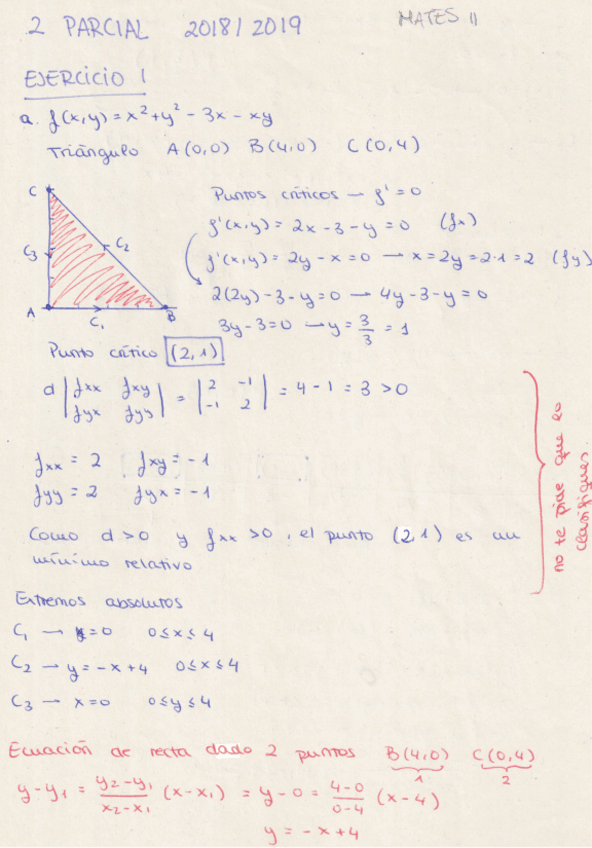 2 PARCIAL 2018/2019 MATES II
EJERCICIO 1
a. f(x,y) = x² + y² - 3x - xy
Triángulo A(0,0) B(4,0) C(0,4)
C
C₃
C₂
A
C₁
B
Puntos críticos → f' = 0
f'(x,y) = 2x - 3 - y = 0 (fx)
f'(x,y) = 2y - x = 0 → x = 2y = 2·1 = 2 (fy)
2(2y) - 3 - y = 0 → 4y - 3 - y = 0
3y - 3 = 0 → y = 3/3 = 1
Punto crítico (2,1)
d |fxx fxy| = |2 -1| = 4 - 1 = 3 > 0
|fyx fyy| |-1 2|
fxx = 2 fxy = -1
fyy = 2 fyx = -1
Como d > 0 y fxx > 0, el punto (2,1) es un
mínimo relativo
no te pide que lo
clasifiques
Extremos absolutos
C₁ → y = 0 0 ≤ x ≤ 4
C₂ → y = -x + 4 0 ≤ x ≤ 4
C₃ → x = 0 0 ≤ y ≤ 4
Ecuación de recta dado 2 puntos B(4,0) C(0,4)
1 2
y - y₁ = y₂ - y₁ / x₂ - x₁ (x - x₁) = y - 0 = 4-0 / 0-4 (x - 4)
y = -x + 4